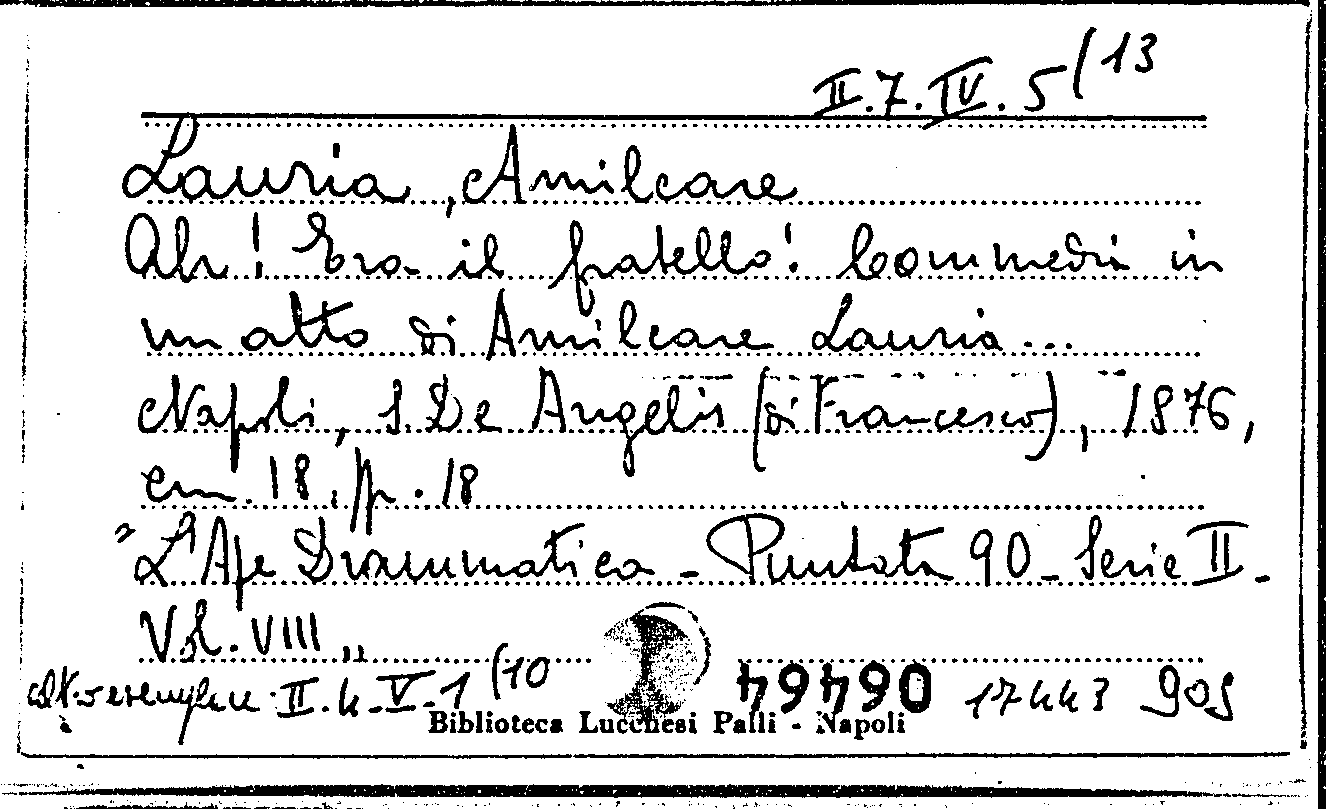 II.7.IV.5/13
Lauria, Amilcare
Ah! Era il fratello! Commedia in
un atto di Amilcare Lauria...
Napoli, S. De Angelis (di Francesco), 1876,
cm. 18, pp. 18
"L'Ape Drammatica - Puntata 90 - Serie II -
Vol. VIII"
altro esemplare II.4.V.1/10
49490 17443 905
Biblioteca Lucchesi Palli - Napoli